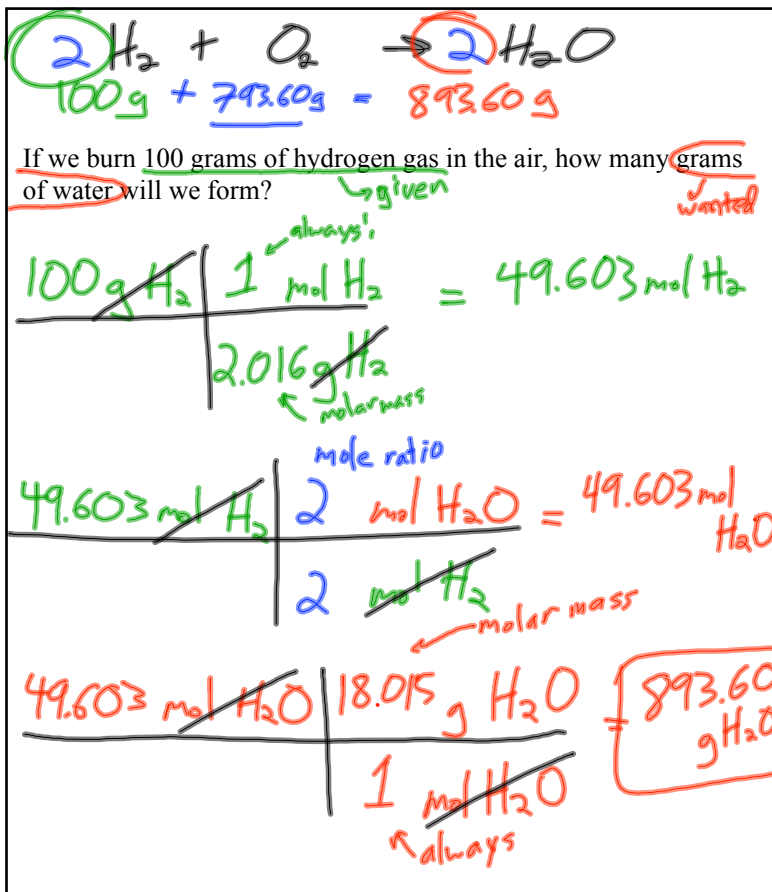 2 H₂ + O₂ → 2 H₂O
100g + 793.60g = 893.60 g
If we burn 100 grams of hydrogen gas in the air, how many grams
of water will we form?
given
wanted
always!
100 g H₂ 1 mol H₂ = 49.603 mol H₂
2.016 g H₂
molar mass
mole ratio
49.603 mol H₂ 2 mol H₂O = 49.603 mol
H₂O
2 mol H₂
molar mass
49.603 mol H₂O 18.015 g H₂O = 893.60
g H₂O
1 mol H₂O
always